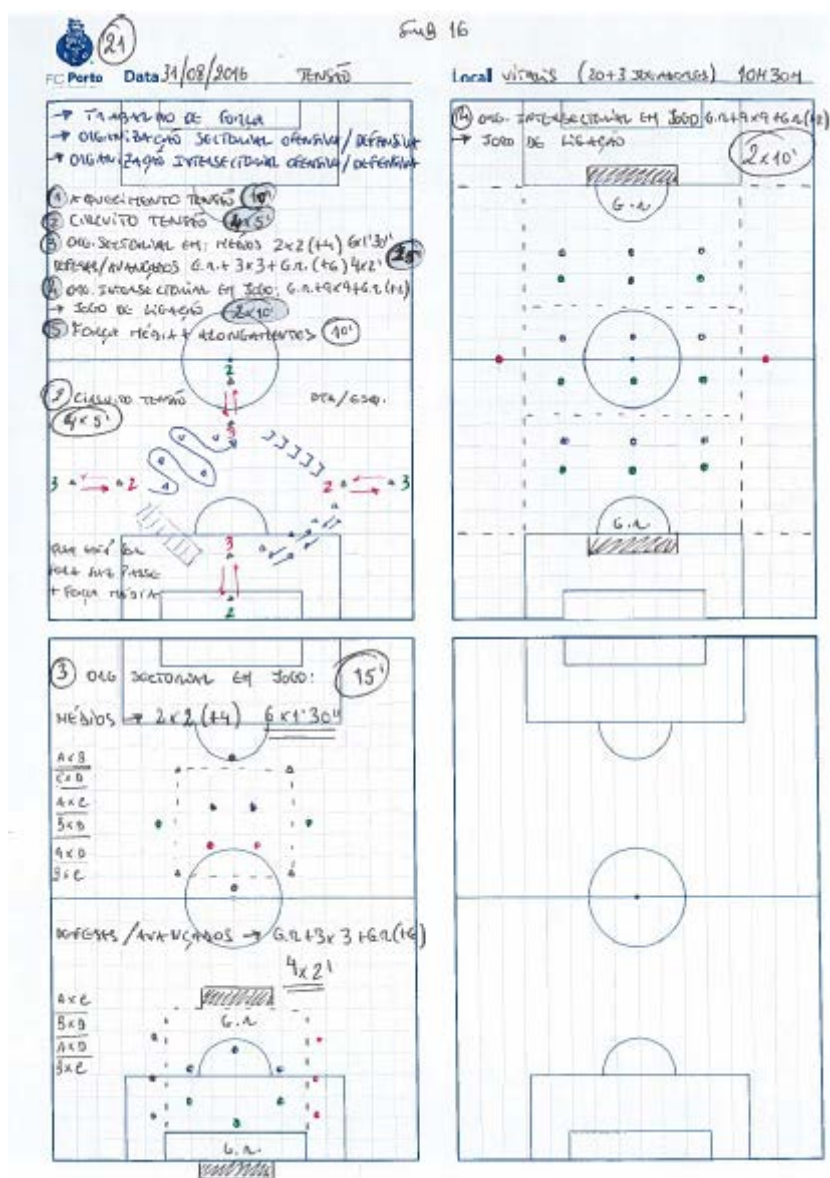 SUB 16
21
FC Porto Data 31/08/2016 TENSÃO
Local VITALIS (20+3 JOGADORES) 10H30M
→ TRABALHO DE FORÇA
→ ORGANIZAÇÃO SECTORIAL OFENSIVA/DEFENSIVA
→ ORGANIZAÇÃO INTERSECTORIAL OFENSIVA/DEFENSIVA
1 AQUECIMENTO TENSÃO 10'
2 CIRCUITO TENSÃO 4x5'
3 ORG. SECTORIAL EM: MÉDIOS 2x2 (+4) 6x1'30''
DEFESAS/AVANÇADOS G.R.+3x3+G.R.(+6) 4x2'
4 ORG. INTERSECTORIAL EM JOGO: G.R.+9x9+G.R.(+2)
→ JOGO DE LIGAÇÃO 2x10'
5 FORÇA MÉDIA + ALONGAMENTOS 10'
2 CIRCUITO TENSÃO DTA/ESQ.
4x5'
2
3
3 2 2 3
3
2
FAZ PASSE
+ FORÇA MÉDIA
4 ORG. INTERSECTORIAL EM JOGO G.R.+9x9+G.R.(+2)
→ JOGO DE LIGAÇÃO
2x10'
G.R.
G.R.
3 ORG SECTORIAL EM JOGO: 15'
MÉDIOS → 2x2 (+4) 6x1'30''
AxB
CxD
AxC
BxD
AxD
BxC
DEFESAS/AVANÇADOS → G.R.+3x3+G.R.(+6)
4x2'
AxC
BxD
AxD
BxC
G.R.
G.R.